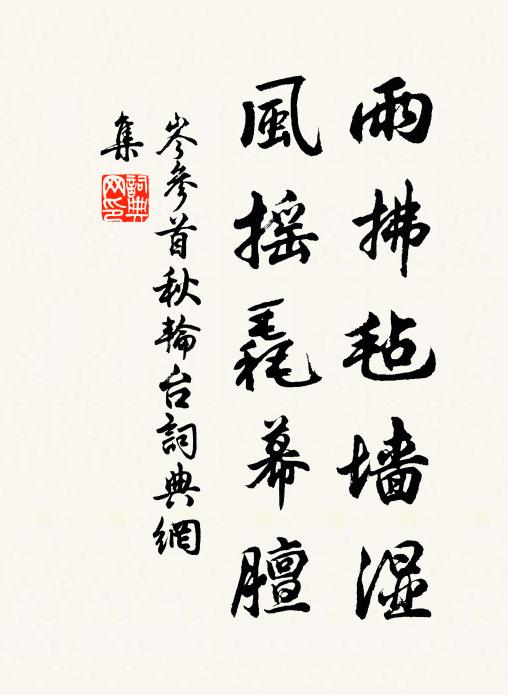 雨拂毡墙湿
風摇毳幕膻
岑參首秋輪台詞典網
集
詞典
网印